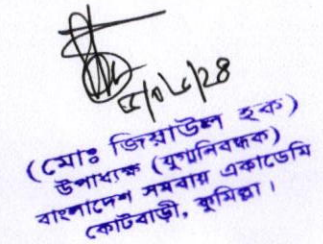 (মোঃ জিয়াউল হক)
উপাধ্যক্ষ (যুগ্মনিবন্ধক)
বাংলাদেশ সমবায় একাডেমি
কোটবাড়ী, কুমিল্লা।